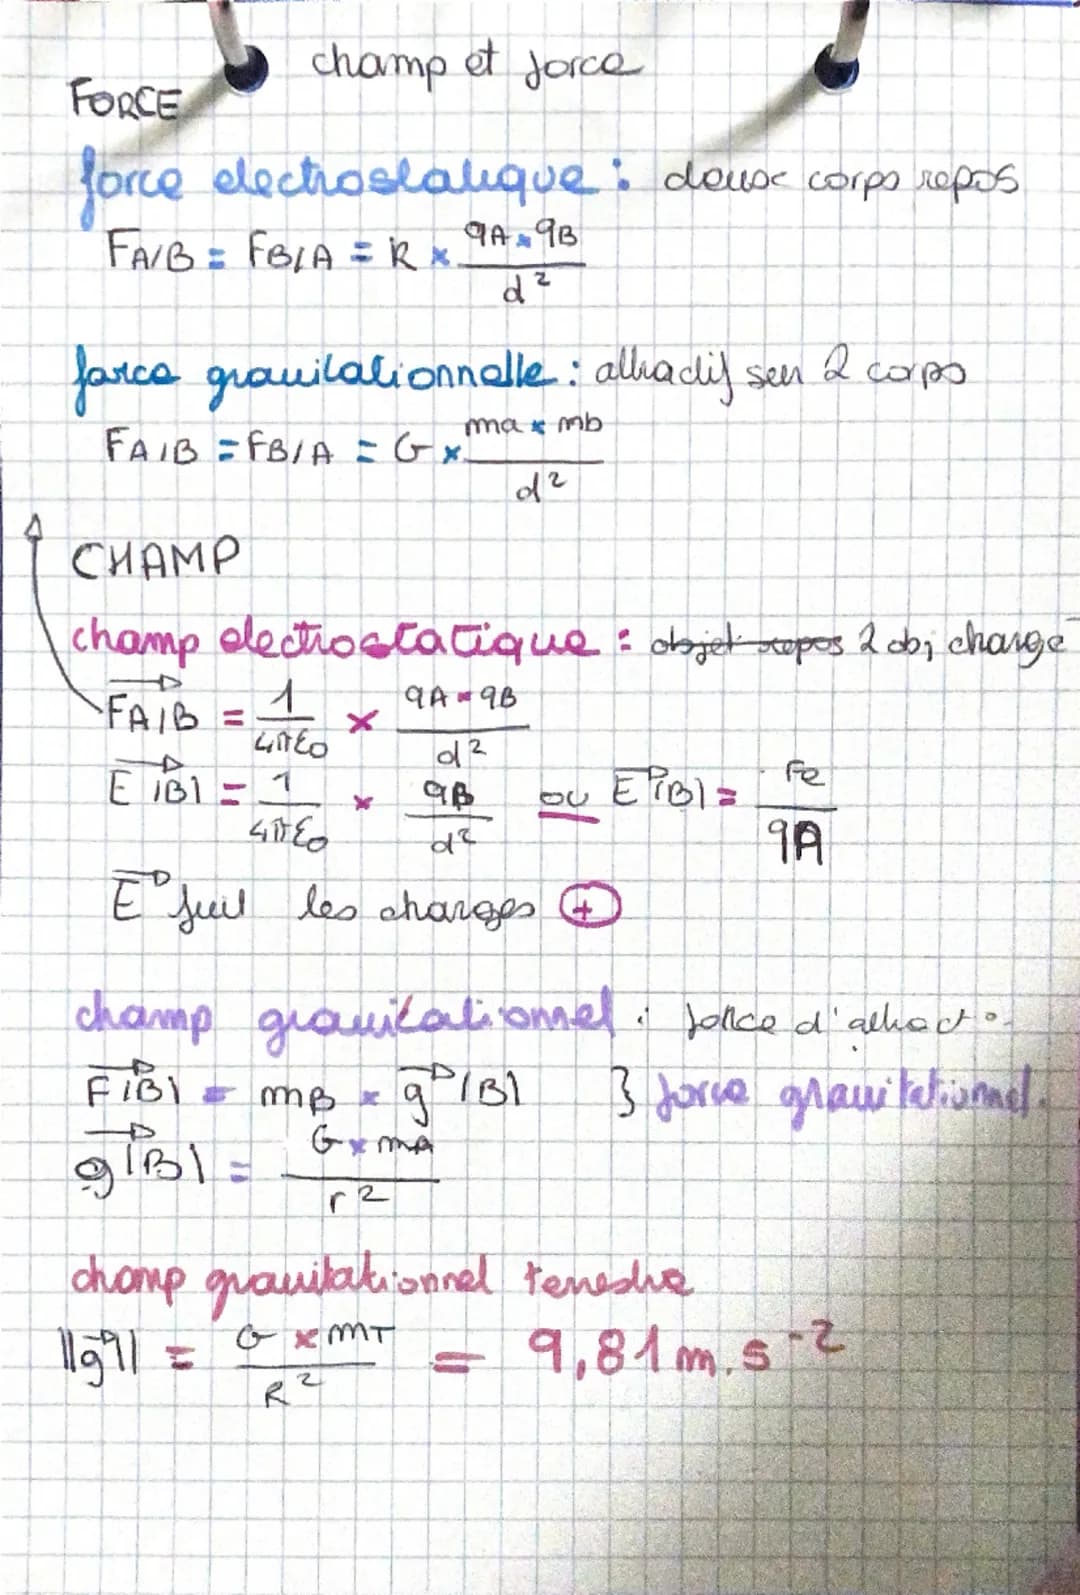 champ et force
FORCE
force electrostatique : deux corps repos
FA/B = FB/A = k × qA × qB / d²
force gravitationnelle : attractif sur 2 corps
FA/B = FB/A = G × ma × mb / d²
CHAMP
champ electrostatique : objet repos 2 obj chargé
FA/B = 1 / 4πε0 × qA × qB / d²
E(B) = 1 / 4πε0 × qB / d² ou E(B) = Fe / qA
E fuit les charges +
champ gravitationnel : force d'attract°
F(B) = mB × g(B) } force gravitationnel.
g(B) = G × mA / r²
champ gravitationnel terrestre
||g|| = G × mT / R² = 9,81 m.s-2